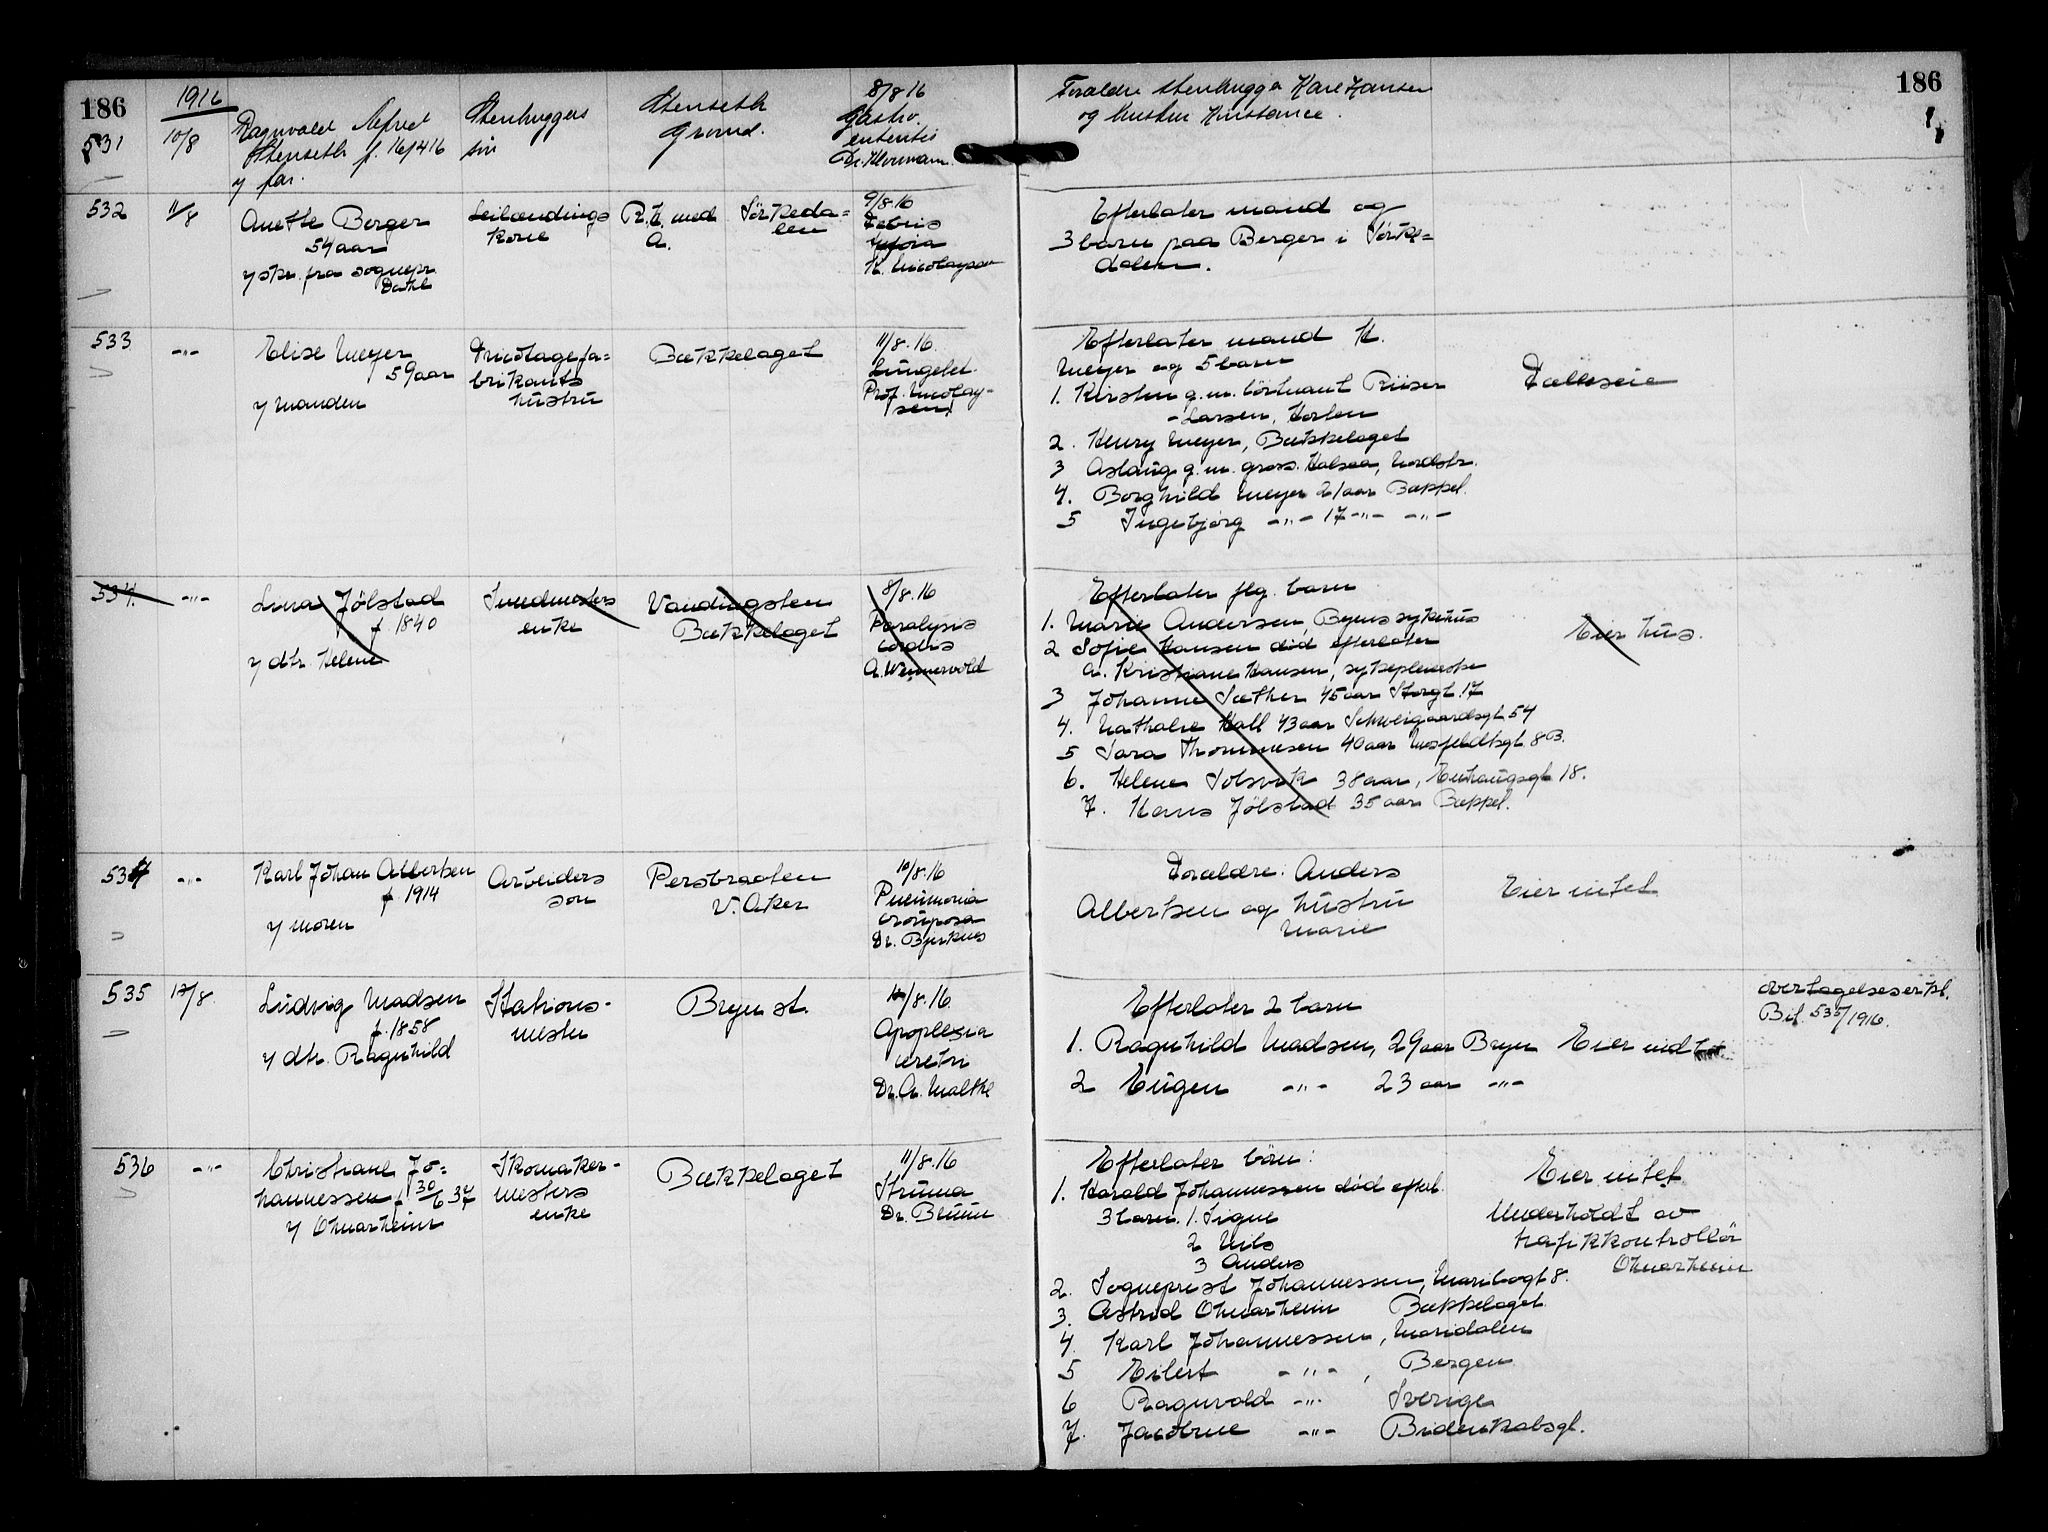 186
1916
531
10/8
Ragnvald Alfred
Stenseth f. 16/4 16
y far.
Stenhuggers
sön
Stenseth
Grorud.
8/8 16
Gastro.
enteritis
Dr.
Foraldre stenhugger Karl Hansen
og hustru Konstance.
186
532
11/8
Anette Berger
54 aar
y skr. fra sognepr.
Dahl
Leilændings
kone
R. h. med
A.
Sörkeda=
len
9/8.16
K. Nicolaysen
Efterlater mand og
3 barn paa Berger i Sörke=
dalen.
533
-"-
Elise Meyer
59 aar
y manden
Tricotagefa=
brikants
hustru
Bækkelaget
11/8.16.
Prof. Nicolay-
sen
Efterlater mand H.
Meyer og 5 barn
1. Kirsten g.m. löitnant Riiser
-Larsen, Horten
2. Henry Meyer, Bækkelaget
3 Aslaug g.m. gross. Halsaa, Nordstr.
4. Borghild Meyer 21 aar Bækkel.
5 Ingebjörg -"- 17 -"- -"-
Fælleseie
534.
-"-
Lina Jölstad
f. 1840
y dtr. Helene
Svendmesters
enke
Vandingsten
Bækkelaget
8/8.16
Paralysis
cordis
A. Wennervold
Efterlater flg. barn
1. Marie Andersen, Byens sykehus
2 Sofie Hansen död efterlater
a. Kristiane Hansen, sykepleierske
3 Johanne Sæther 45 aar Storgt. 17
4. Nathalie Hall 43 aar Schweigaardsgt. 54
5 Sara Thommesen 40 aar Mosfeldtsgt. 8 B.
6. Helene Solsvik 38 aar, Enhaugsgt. 18.
7. Hans Jölstad 35 aar Bækkel.
Eier hus.
534
-"-
Karl Johan Albertsen
f 1914
y moren
Arbeiders
sön
Persbraaten
V. Aker
10/8.16
Pneumonia
crouposa
Dr. Bjerknes
Foraldre: Anders
Albertsen og hustru
Marie
Eier intet
535
12/8.
Ludvig Madsen
f. 1858
y dtr. Ragnhild
Stations-
mester
Bryn st.
/8.16
Apoplexia
cerebri
Dr. A. Malthe
Efterlater 2 barn
1. Ragnhild Madsen, 29 aar Bryn
2 Eugen -"- 23 aar -"-
Eier
overtagelseserkl.
Bil. 535/1916.
536
-"-
Christiane Jo=
hannessen f 30/6 37
y Othmarheim
Skomaker-
mesters
enke
Bækkelaget
11/8.16
Struma
Dr. Bruun
Efterlater börn:
1. Harald Johannessen död efterl.
3 barn. 1. Signe
2 Nils
3 Anders
2. Sogneprest Johannessen, Maribogt 8.
3. Astrid Othmarheim Bækkelaget
4. Karl Johannessen, Maridalen
5 Eilert -"-, Bergen
6 Ragnvald -"- Sverige
7. Jacobine -"- Bidenkabsgt.
Eier intet
Underholdt av
trafikkontrollör
Othmarheim